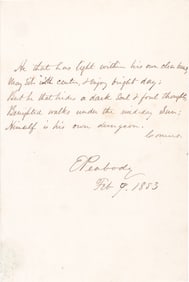 He that has light within his own clear breast
May sit i' th' center, & enjoy bright day;
But he that hides a dark soul & foul thoughts,
Benighted walks under the mid-day Sun;
Himself is his own dungeon.
Comus.
E Peabody
Feb 9, 1853